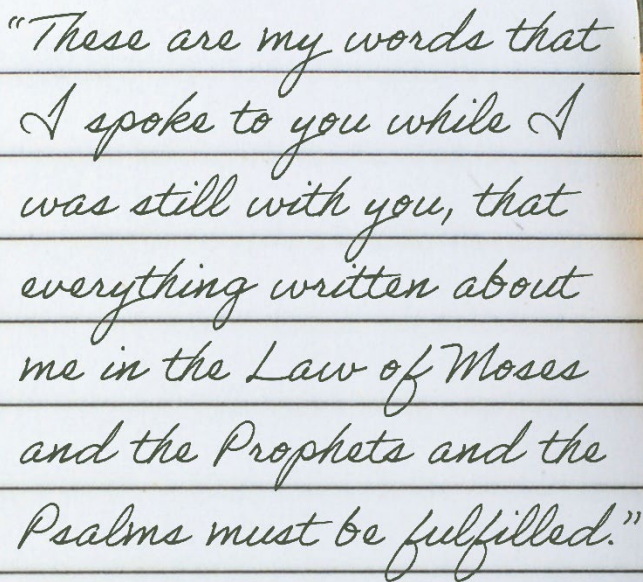 “These are my words that
I spoke to you while I
was still with you, that
everything written about
me in the Law of Moses
and the Prophets and the
Psalms must be fulfilled.”